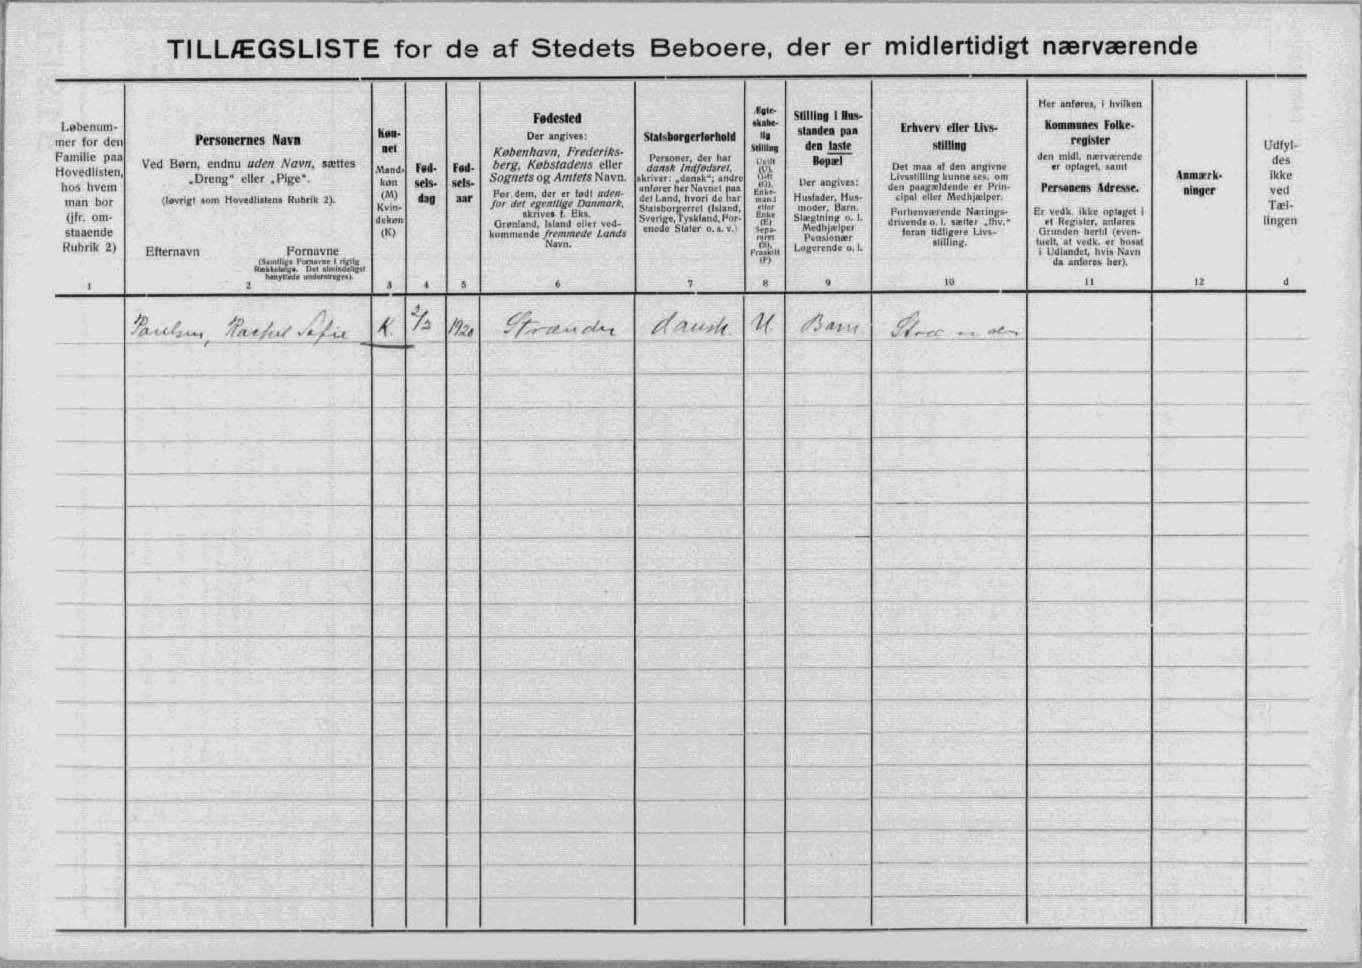 TILLÆGSLISTE for de af Stedets Beboere, der er midlertidigt nærværende
Løbenum-
mer for den
Familie paa
Hovedlisten,
hos hvem
man bor
(jfr. om-
staaende
Rubrik 2)
1
Personernes Navn
Ved Børn, endnu uden Navn, sættes
„Dreng“ eller „Pige“.
(Iøvrigt som Hovedlistens Rubrik 2).
Efternavn Fornavne
(Samtlige Fornavne i rigtig
Rækkefølge. Det almindeligst
benyttede understreges).
2
Køn-
net
Mand-
køn
(M)
Kvin-
dekøn
(K)
3
Fød-
sels-
dag
4
Fød-
sels-
aar
5
Fødested
Der angives:
København, Frederiks-
berg, Købstadens eller
Sognets og Amtets Navn.
For dem, der er født uden-
for det egentlige Danmark,
skrives f. Eks.
Grønland, Island eller ved-
kommende fremmede Lands
Navn.
6
Statsborgerforhold
Personer, der har
dansk Indfødsret,
skriver: „dansk“; andre
anfører her Navnet paa
det Land, hvori de har
Statsborgerret (Island,
Sverige, Tyskland, For-
enede Stater o. s. v.)
7
Ægte-
skabe-
lig
Stilling
Ugift
(U),
Gift
(G),
Enke-
mand
eller
Enke
(E)
Sepa-
reret
(S),
Fraskilt
(F)
8
Stilling i Hus-
standen paa
den faste
Bopæl
Der angives:
Husfader, Hus-
moder, Barn,
Slægtning o. l.
Medhjælper
Pensionær
Logerende o. l.
9
Erhverv eller Livs-
stilling
Det maa af den angivne
Livsstilling kunne ses, om
den paagældende er Prin-
cipal eller Medhjælper.
Forhenværende Nærings-
drivende o. l. sætter „fhv.“
foran tidligere Livs-
stilling.
10
Her anføres, i hvilken
Kommunes Folke-
register
den midl. nærværende
er optaget, samt
Personens Adresse.
Er vedk. ikke optaget i
et Register, anføres
Grunden hertil (even-
tuelt, at vedk. er bosat
i Udlandet, hvis Navn
da anføres her).
11
Anmærk-
ninger
12
Udfyl-
des
ikke
ved
Tæl-
lingen
d
Poulsen, Rachel Sofie K. 2/2 1920 Strænder dansk U Barn